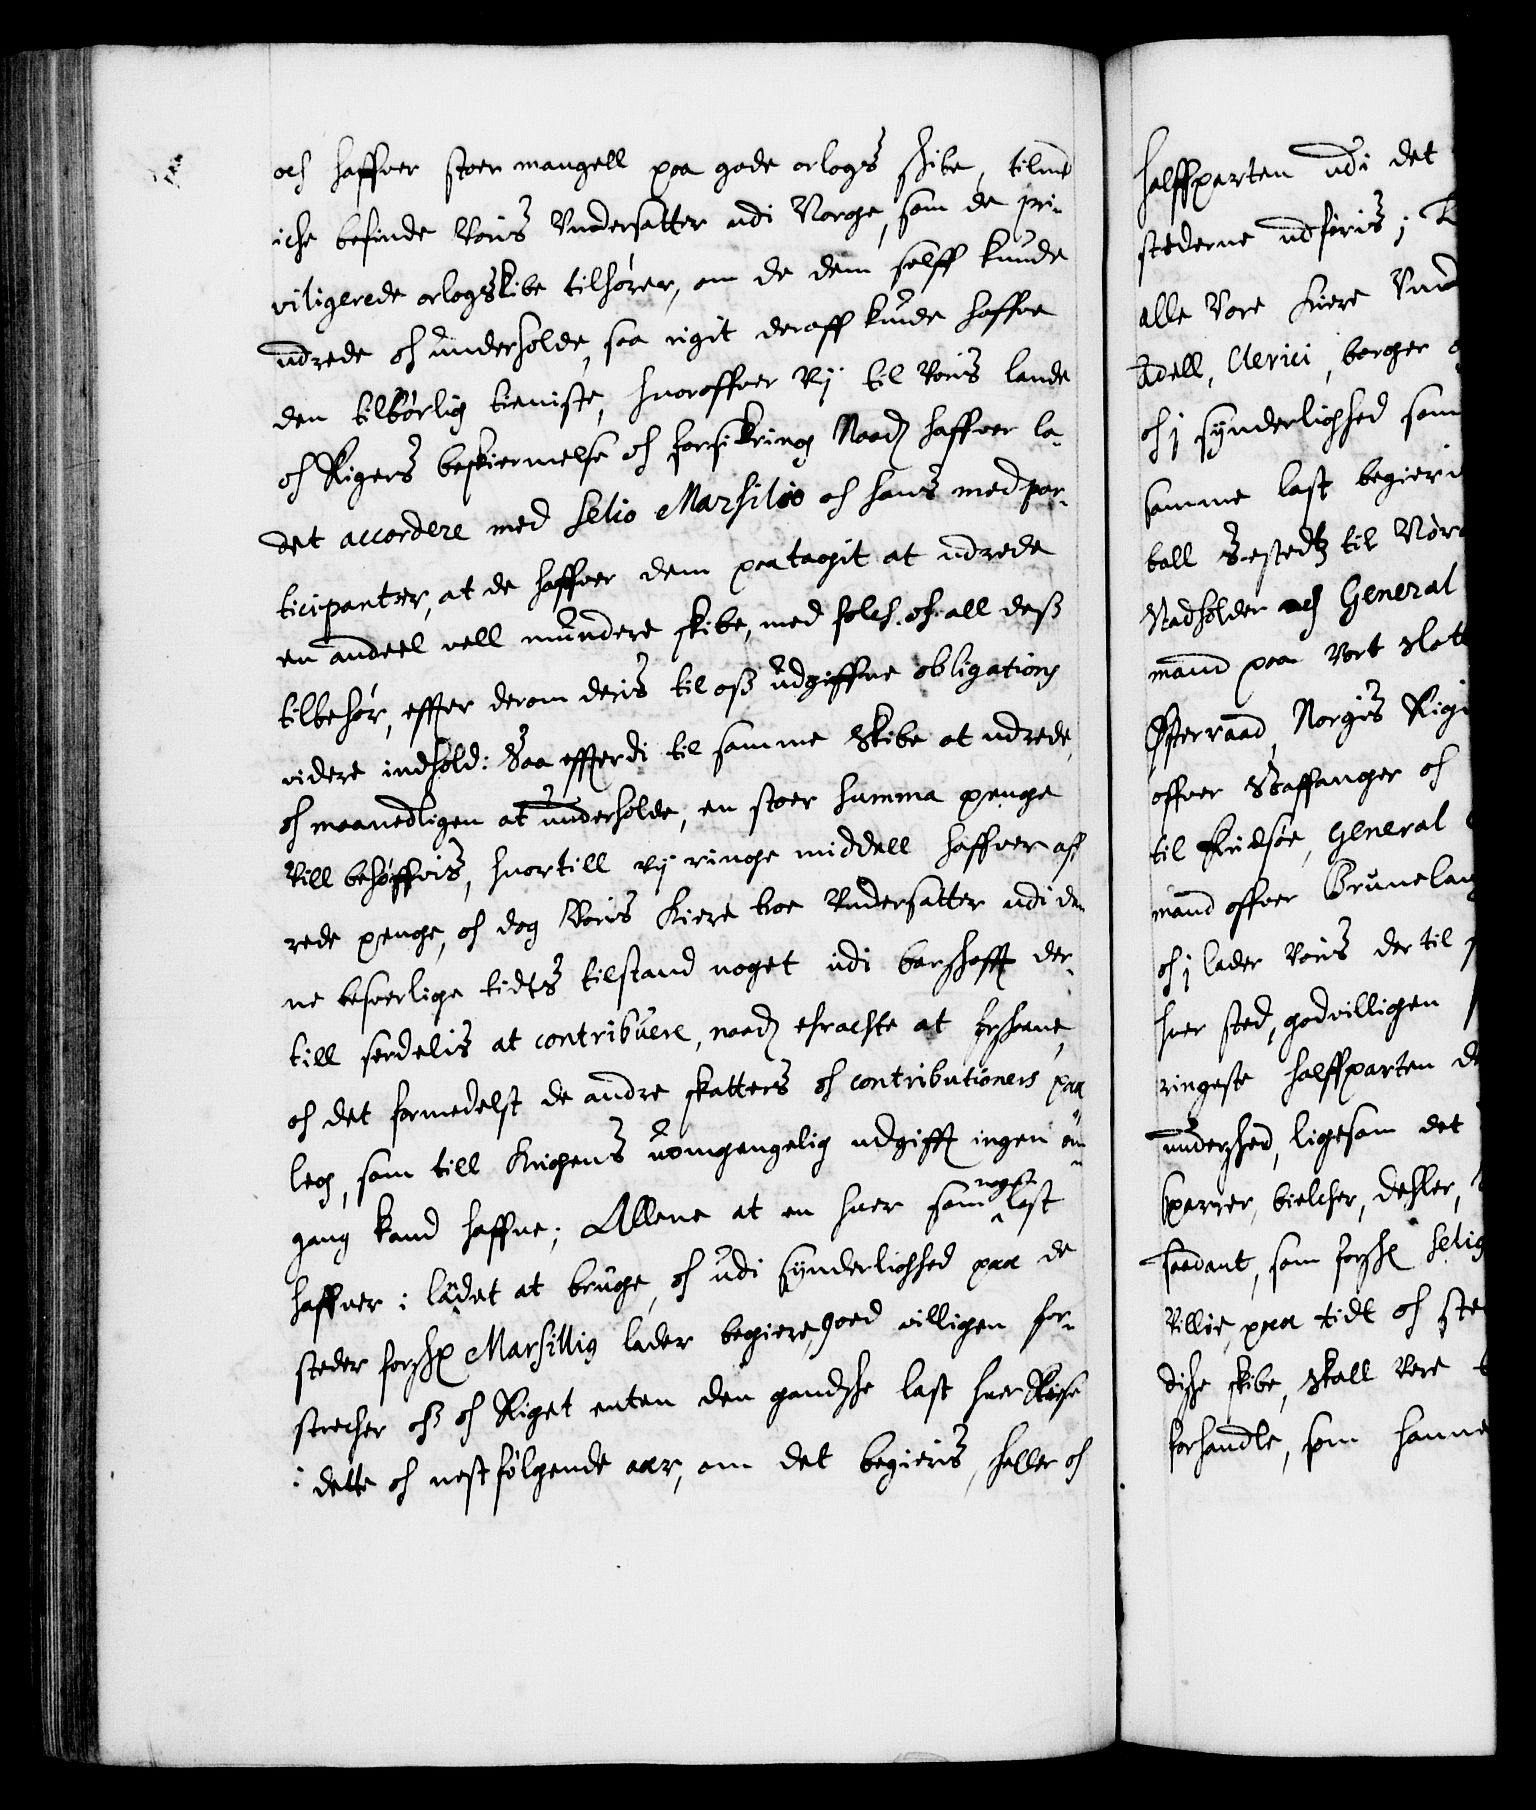 och haffver stoer mangell paa gode orlogs skibe, tilmed
iche befinde Voris Undersatter udi Norge, som de pri-
viligerede orlogskibe tilhører, om de dem selff kunde
udrede och underholde, saa vigit deraff kunde haffve
den tilbørlig tieniste, hvoroffver Vÿ til Voris lande
och Rigers beskiermelse och forsikring Naadh haffver la-
det accordere med Selio Marsilio och hans medpar-
ticipanter, at de haffver dem paataget at udrede
en andeel vell mundere skibe, med folch och all dess
tilbehør, effter derom deris til oss udgiffne obligations
videre indhold: Saa efftterdi til samme Skibe at udrede
och maanedligen at underholde, en stoer summa penge
Vill behøffvis, hvortill Vÿ ringe middell haffver aff
rede penge, och dog Voris Kiere troe Undersatter udi den-
ne besverlige tidts tilstand noget udi barschafft der-
till serdelis at contribuere, naadh efrachte at forskaane,
och det formedelst de andre skatters och contributioners paa
leg, som till Krigens uomgengelig udgifft ingen om-
gang kand haffve; Allene at en hver som noget last
haffver i ladet at bruge, och udi synderlighed paa de
steder forsch Marsillius lader begiere, goed villigen for-
strecher oss och Riget enten den gandsche last hver Reise
i dette och nestfølgende aar, om det begieris, heller och
halffparten udi det
stederne udføris;
alle Vore Kiere Und
Adell, Clerici, borger
och j synderlighed som
samme last begieri
ball Sestedtz til Nør
Stadholder och General
mand paa Vort Slott
Øfterraad, Norgis Rigi
offver Staffanger och
til Fridsøe, General
mand offver Brunelau
och j lader Voris der til
hver sted, godvilligen
ringeste halffparten de
underhed, ligesom det
sparrer, bielcher, dehler,
saadant, som forsch Selig
Villie, paa tidt och ste
disse skibe, skall Vere
forhandle, som hanne